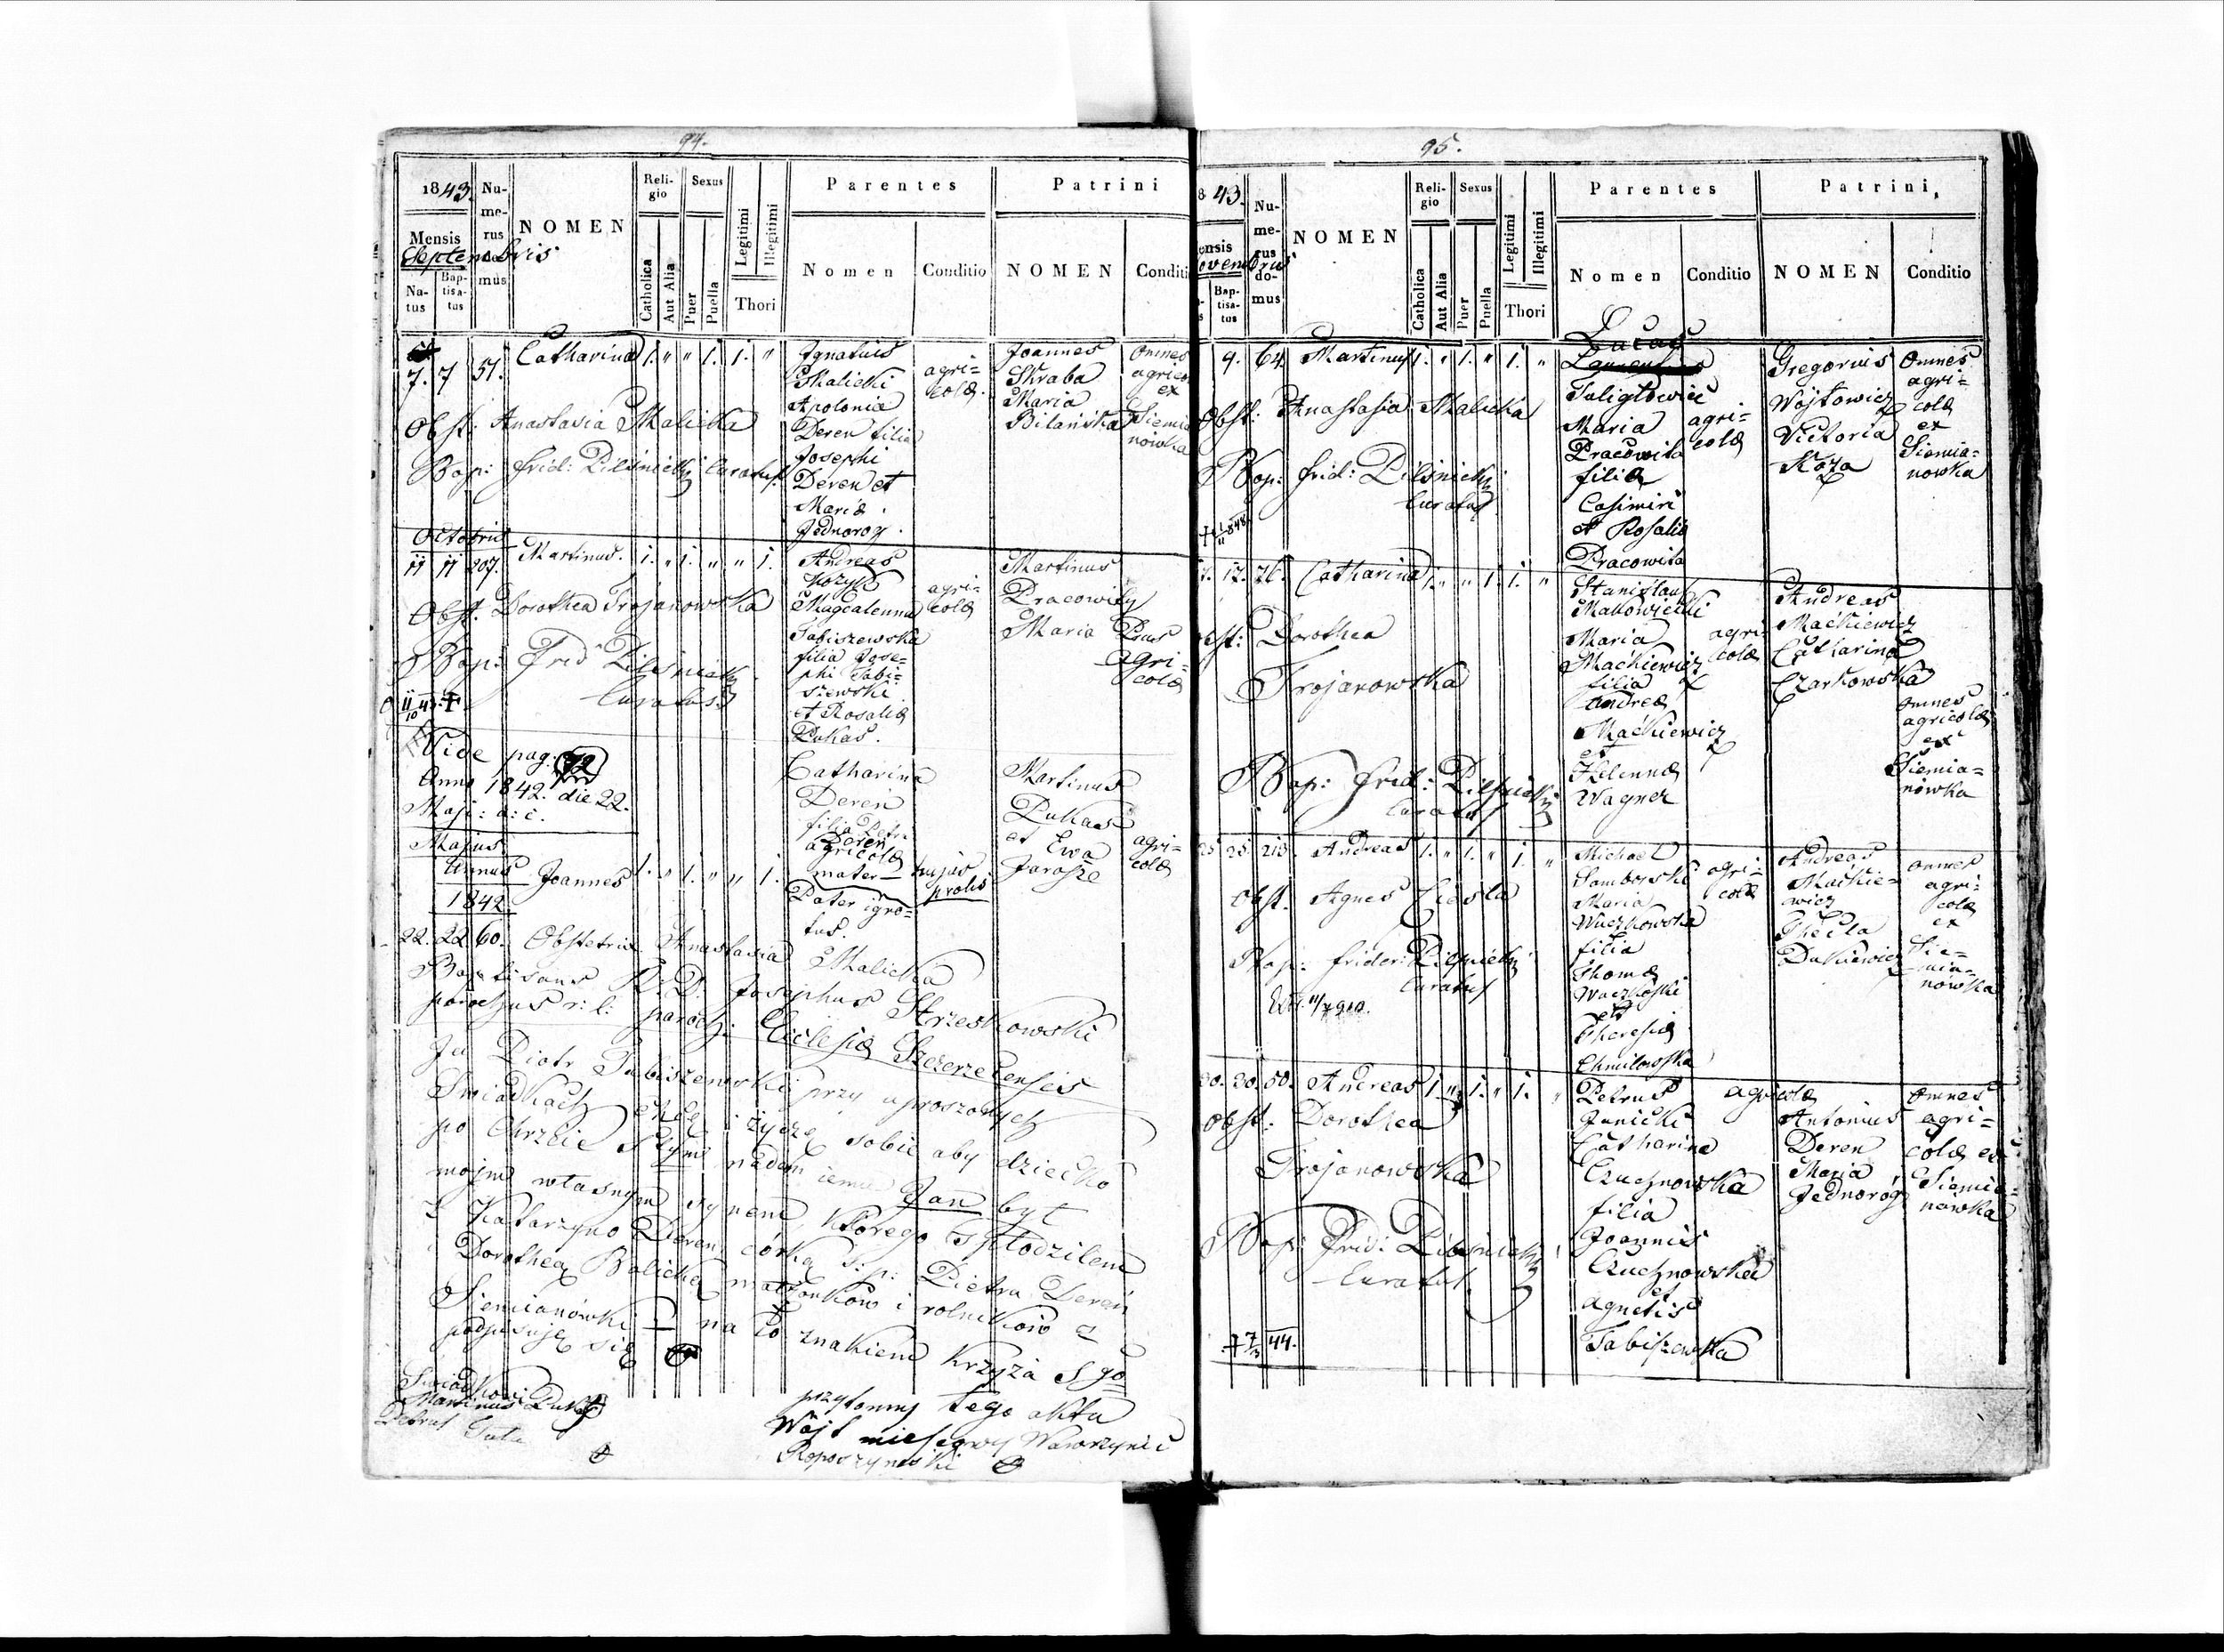 94.
1843.
Mensis
Septembris
Na-
tus
Bap-
tisa-
tus
Nu-
me-
rus
do-
mus
NOMEN
Reli-
gio
Catholica
Aut Alia
Sexus
Puer
Puella
Legitimi
Illegitimi
Thori
Parentes
Nomen
Conditio
Patrini
NOMEN
Conditi
7. 7 51. Catharina 1. " " 1. 1. "
Ignatius
Malicki
Apolonia
Deren filia
Josephi
Deren et
Maria
Jednorog
agri=
colæ
Joannes
Skraba
Maria
Bilańska
Omnes
agrico
ex
Siemia
nowka
Obst: Anastasia Malicka
Bap: frid: Pilsnicki Curatus
Octobris
11 11 207. Martinus. 1. " 1. " " 1.
Andreas
Kozyk
Magdalenna
Tabiszewska
filia Jose=
phi Tabi=
szewski
et Rosalia
Pukas.
agri=
colæ
Martinus
Pracowity
Maria Pus
agri=
colæ
Obst. Dorothea Trojanowska
Bap: Frid Pilsnicki
Curatus
11/10 43. †
Vide pag. 72
Anno 1842. die 22.
Maji: a: c.
Majus
Annus
1842
22. 22 60.
Joannes 1. " 1. " " 1.
Catharina
Deren
filia Petri
Deren
agricolæ
mater hujus
prolis
Pater igno=
tus.
Martinus
Pukas
et Ewa
Jarosze
agri=
colæ
Obstetrix Anastasia Malicka
Baptisans R. D. Josephus Strzeskowski
parochus r: l: paroch: Ecclesiæ Szczerzecensis
Ja Piotr Tabiszewski przy uproszonych
Swiadkach chcę i życzę sobie aby dziecko
po Chrzcie Stym nadane iemu Jan był
mojm własnym synem, którego spłodziłem
z Katarzyną Deren córką s: p: Piotra Deren
Dorothea Balicka małżonków i rolników z
Siemianówki na to znakiem krzyża Sgo
podpisuję się
Swiadkowie
Martinus Pukas
Petrus
przytomny tego aktu
Wójt miescowy Wawrzynie
95.
8 43.
ensis
ovembris
Bap-
tisa-
tus
Nu-
me-
rus
do-
mus
NOMEN
Reli-
gio
Catholica
Aut Alia
Sexus
Puer
Puella
Legitimi
Illegitimi
Thori
Parentes
Nomen
Conditio
Patrini,
NOMEN
Conditio
9. 64. Martinus 1. " 1. " 1. "
Lucas
Maria
Pracowita
filia
Casimiri
et Rosalia
Pracowita
agri=
colæ
Gregorius
Wojtowicz
Victoria
Koza
Omnes
agri=
colæ
ex
Siemia=
nowka
Obst: Anastasia Malicka
Bap: frid: Pilsnicki
Curatus
12. 76. Catharina 1. " " 1. 1. "
Stanislaus
Makowiecki
Maria
Maćkiewicz
filia
Andreæ
Maćkiewicz
et
Helennæ
Wagner
agri
colæ
Andreas
Maćkiewicz
Catharina
Czarkowska
omnes
agricolæ
ex
Siemia=
nówka
obst: Dorothea
Trojanowska
Bap: frid: Pilsnicki
Curatus
25 25. 213. Andreas 1. " 1. " 1. "
Michael
Samborski
Maria
Waczkowska
filia
Thomæ
et
Theresiæ
Chmilowska
agri=
colæ
Andreas
Maćkie=
wicz
Thecla
Dukiewicz
omnes
agri=
colæ
ex
Sie=
mia=
nówka
Obst. Agnes Ciesla
Bap: frider: Pilsnicki
Curatus
30. 30. 50. Andreas 1. " 1. " 1. "
Petrus
Janicki
Catharina
Czuchnowska
filia
Joannis
Czuchnowska
et
Agnetis
Tabiszewska
agricolæ
Antonius
Deren
Maria
Jednoróg
omnes
agri=
colæ ex
Siemia=
nówka
Obst: Dorothea
Trojanowska
Bap: Frid: Pilsnicki
Curatus
† 7/3 44.